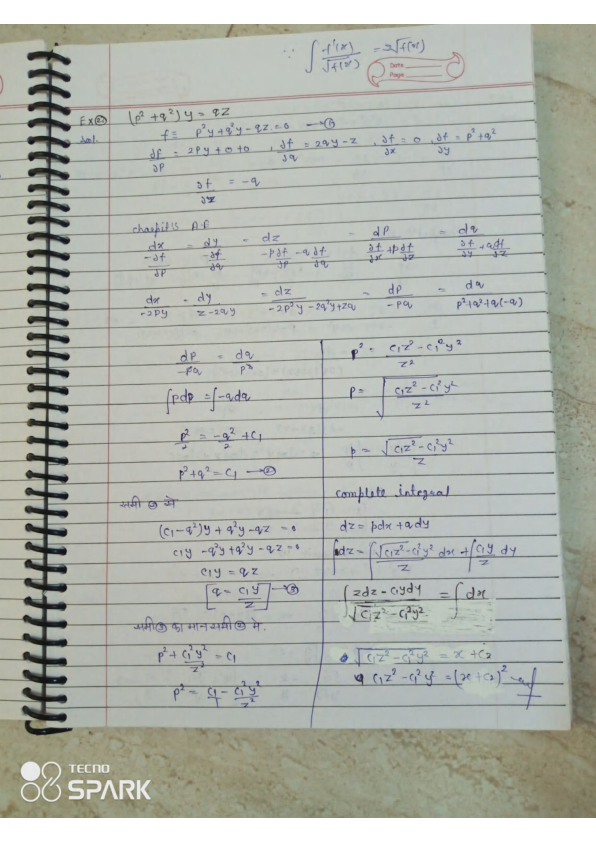 ∵ ∫ f'(x)/√f(x) = 2√f(x)
Date
Page
Ex (p² + q²) y = qz
sol. f = p²y + q²y - qz = 0 —①
∂f/∂p = 2py + 0 + 0, ∂f/∂q = 2qy - z, ∂f/∂x = 0, ∂f/∂y = p² + q²
∂f/∂z = -q
charpit's A.E
dx/(-∂f/∂p) = dy/(-∂f/∂q) = dz/(-p∂f/∂p - q∂f/∂q) = dp/(∂f/∂x + p∂f/∂z) = dq/(∂f/∂y + q∂f/∂z)
dx/(-2py) = dy/(z-2qy) = dz/(-2p²y - 2q²y + zq) = dp/(-pq) = dq/(p² + q² + q(-q))
dp/(-pq) = dq/p²
∫pdp = ∫-qdq
p²/2 = -q²/2 + c₁
p² + q² = c₁ —②
समी ② से
(c₁ - q²)y + q²y - qz = 0
c₁y - q²y + q²y - qz = 0
c₁y = qz
[q = c₁y/z] —③
समी ③ का मान समी ② मे.
p² + c₁²y²/z² = c₁
p² = c₁/1 - c₁²y²/z²
p² = (c₁z² - c₁²y²)/z²
p = √((c₁z² - c₁²y²)/z²)
p = √(c₁z² - c₁²y²)/z
complete integral
dz = pdx + qdy
∫dz = ∫√(c₁z² - c₁²y²)/z dx + ∫c₁y/z dy
∫(zdz - c₁ydy)/√(c₁z² - c₁²y²) = ∫dx
√(c₁z² - c₁²y²) = x + c₂
c₁z² - c₁²y² = (x + c₂)²
TECNO
SPARK